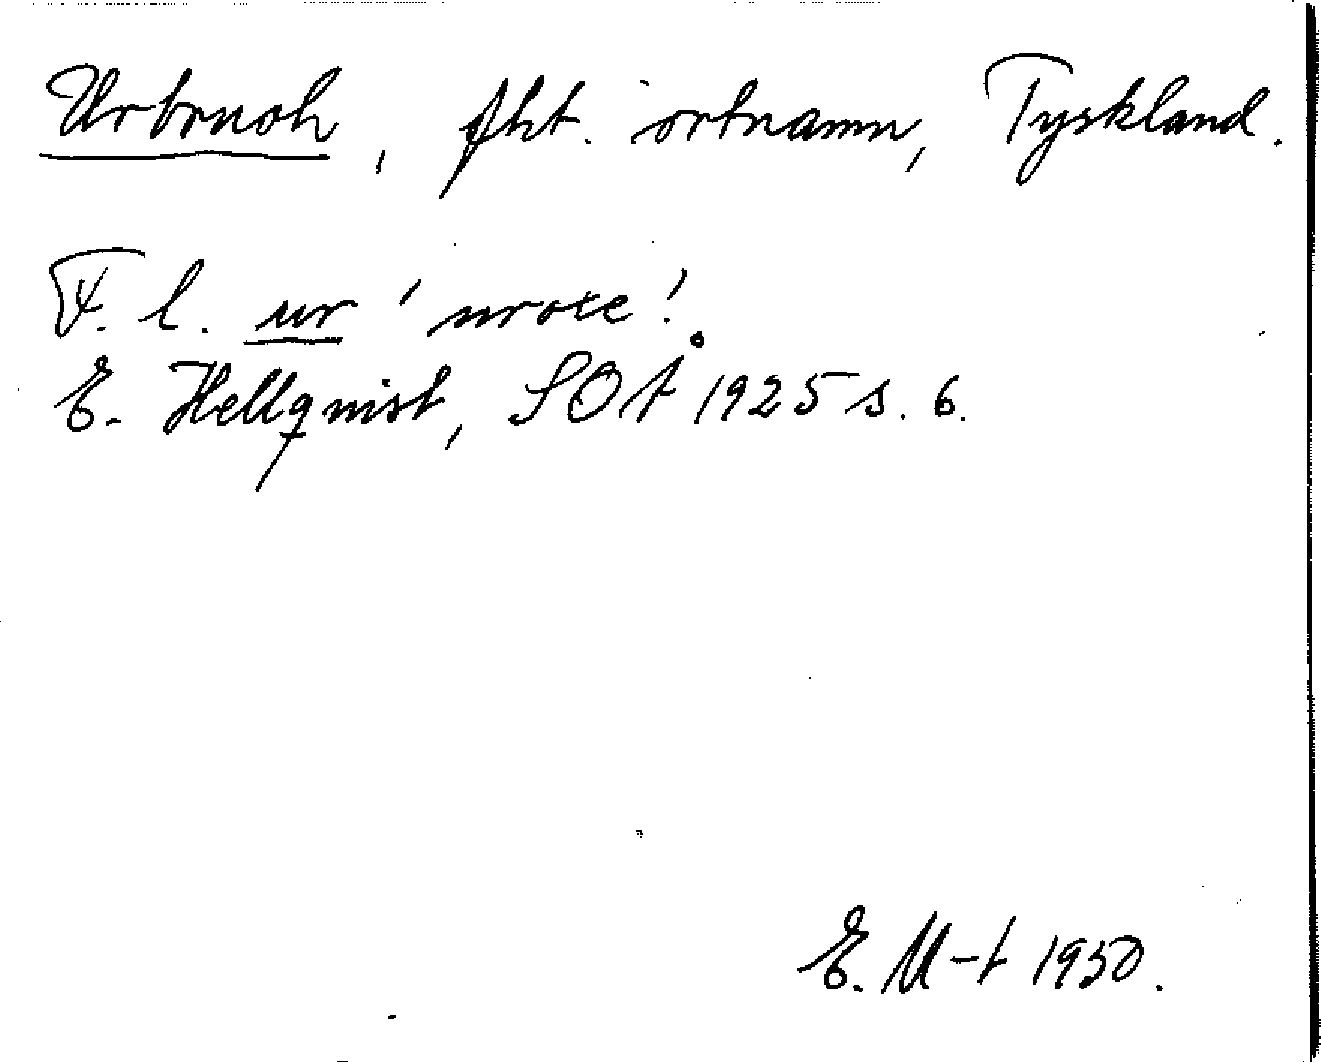 Urbruoh, fht. ortnamn, Tyskland.
F. l. ur 'uroxe'.
E. Hellquist, SOÅ 1925 s. 6.
E. M-t 1950.